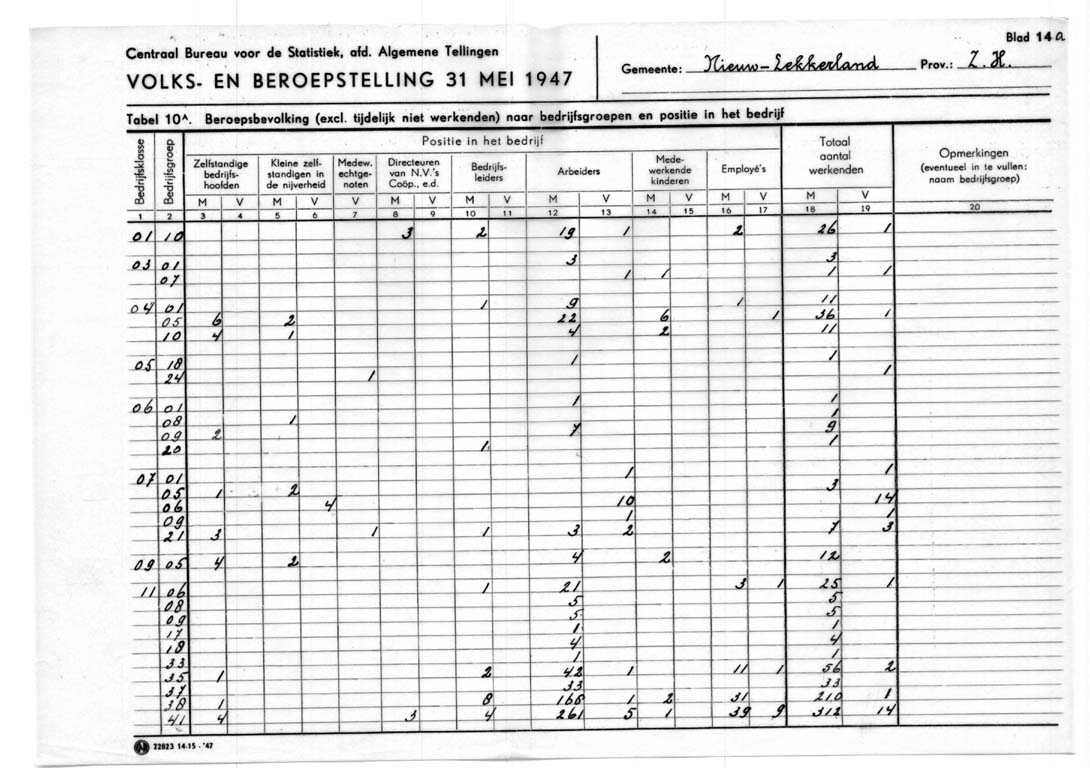 Blad 14 a
Centraal Bureau voor de Statistiek, afd. Algemene Tellingen
VOLKS- EN BEROEPSTELLING 31 MEI 1947
Gemeente: Nieuw-Lekkerland Prov.: Z. H.
Tabel 10A. Beroepsbevolking (excl. tijdelijk niet werkenden) naar bedrijfsgroepen en positie in het bedrijf
Bedrijfsklasse Bedrijfsgroep Positie in het bedrijf Totaal aantal werkenden Opmerkingen (eventueel in te vullen: naam bedrijfsgroep)
Zelfstandige bedrijfshoofden Kleine zelfstandigen in de nijverheid Medew. echtgenoten Directeuren van N.V.'s Coöp., e.d. Bedrijfsleiders Arbeiders Medewerkende kinderen Employé's
M V M V V M V M V M V M V M V M V
1 2 3 4 5 6 7 8 9 10 11 12 13 14 15 16 17 18 19 20
01 10 3 2 19 1 2 26 1
03 01 3 3
07 1 1 1 1
04 01 1 9 1 11
05 6 2 22 6 1 36 1
10 4 1 4 2 11
05 18 1 1
24 1 1
06 01 1 1
08 1 1
09 2 7 9
20 1 1
07 01 1 1
05 1 2 3
06 4 10 14
09 1 1
21 3 1 1 3 2 7 3
09 05 4 2 4 2 12
11 06 1 21 3 1 25 1
08 5 5
09 5 5
17 1 1
18 4 4
33 1 1
35 1 2 42 1 11 1 56 2
37 33 33
38 1 8 168 1 2 31 210 1
41 4 3 4 261 5 1 39 9 312 14
22823 14-15 - '47